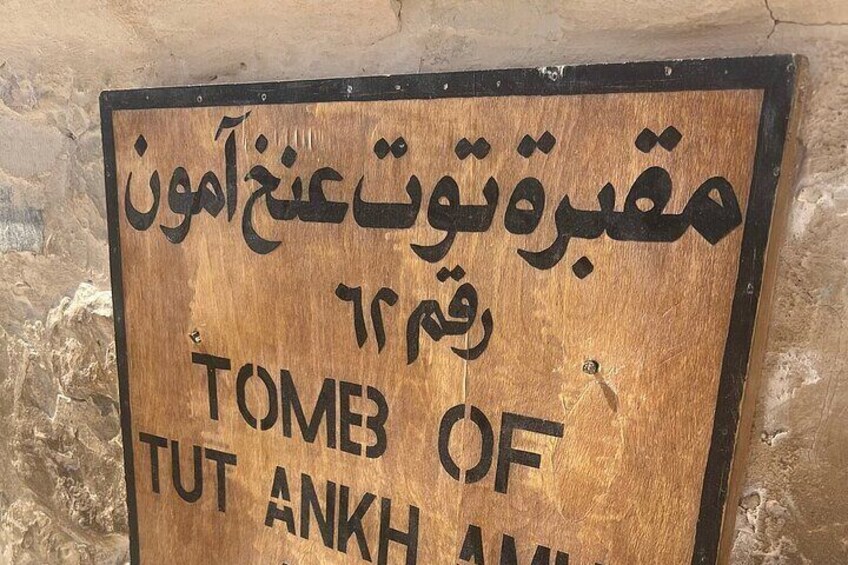 مقبرة توت عنخ آمون
رقم ٦٢
TOMB OF
TUT ANKH